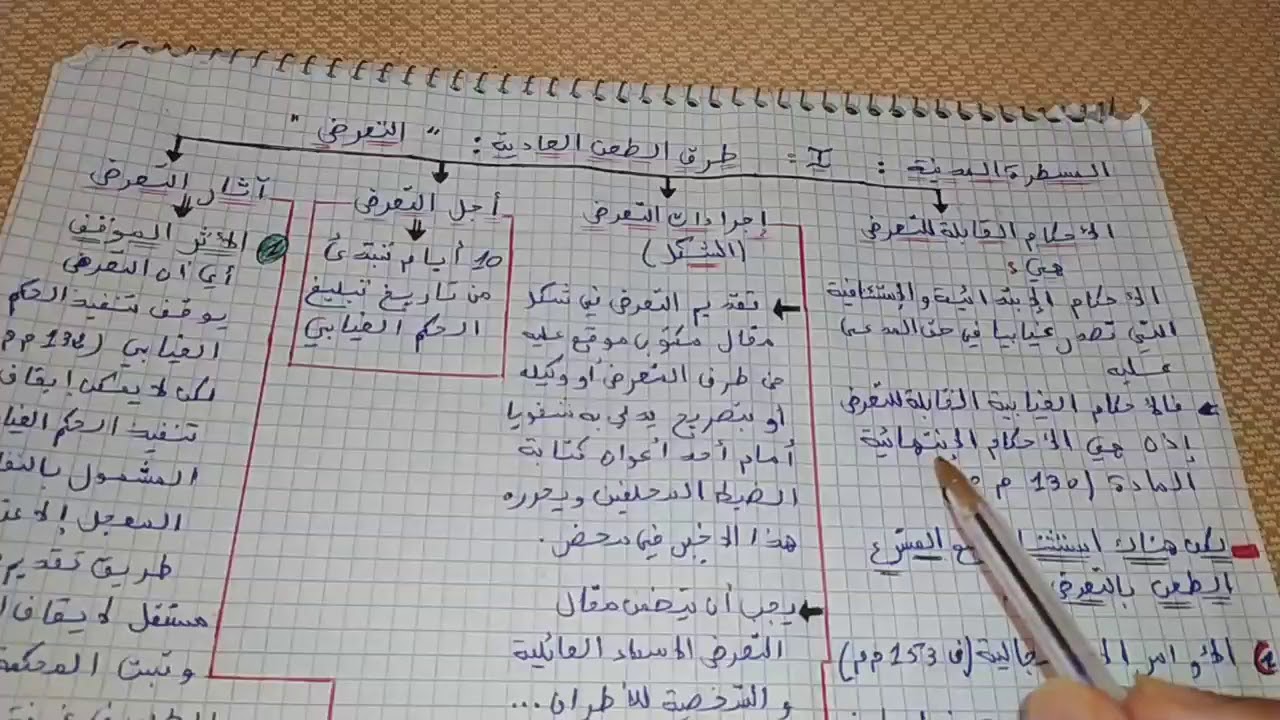 المسطرة المدنية : I = طرق الطعن العادية : " التعرض "
الأحكام القابلة للتعرض
هي :
الأحكام الإبتدائية والإستئنافية
التي تصدر غيابيا في حق المدعى
عليه
فالأحكام الغيابية القابلة للتعرض
إذن هي الأحكام الإنتهائية
المادة (130 م م
لكن هناك المشرع
الطعن بالتعرض
1 الأوامر (ف 153 م م)
إجراءات التعرض
(الشكل)
تقديم التعرض في شكل
مقال مكتوب موقع عليه
من طرف المتعرض أو وكيله
أو بتصريح يدلي به شفويا
أمام أحد أعوان كتابة
الضبط المحلفين ويحرره
هذا الأخير في محضر.
يجب أن يتضمن مقال
التعرض الأسماء العائلية
و الشخصية للأطراف ...
أجل التعرض
10 أيام تبتدئ
من تاريخ تبليغ
الحكم الغيابي
آثار التعرض
1 الأثر الموقف
أي أن التعرض
يوقف تنفيذ الحكم
الغيابي (132 م م
لكن لا يمكن إيقاف
تنفيذ الحكم
المشمول
المعجل إلا
طريق تقديم
مستقل لإيقاف
و تبت المحكمة